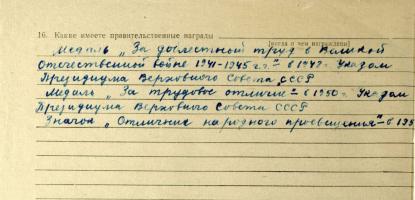 16. Какие имеете правительственные награды
(когда и чем награждены)
Медаль „За доблестный труд в Великой
Отечественной войне 1941-1945 г.г." в 1947г. Указом
Президиума Верховного Совета СССР
Медаль „За трудовое отличие" в 1950г. Указом
Президиума Верховного Совета СССР
Значок „Отличник народного просвещения" в 195